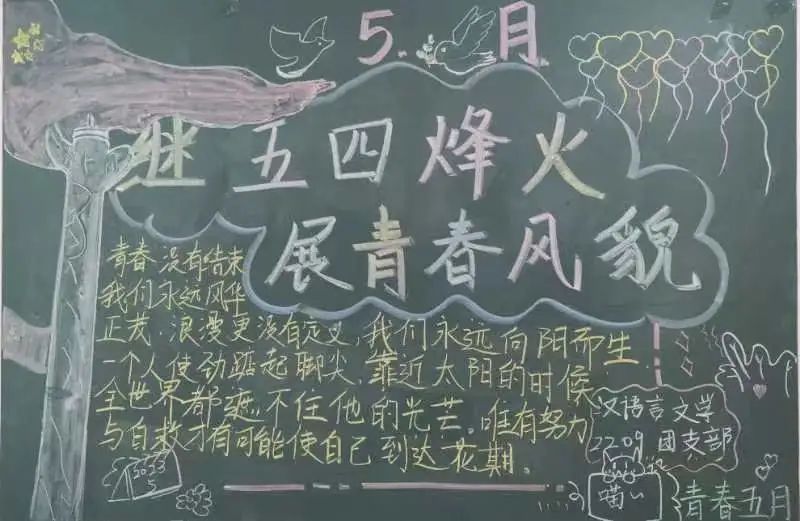 5.月
继五四烽火
展青春风貌
青春没有结束
我们永远风华
正茂，浪漫更没有定义，我们永远向阳而生
一个人使劲踮起脚尖，靠近太阳的时候
全世界都遮不住他的光芒。唯有努力
与自救才有可能使自己到达花期。
汉语言文学
2209团支部
2023
5
喵~
青春五月